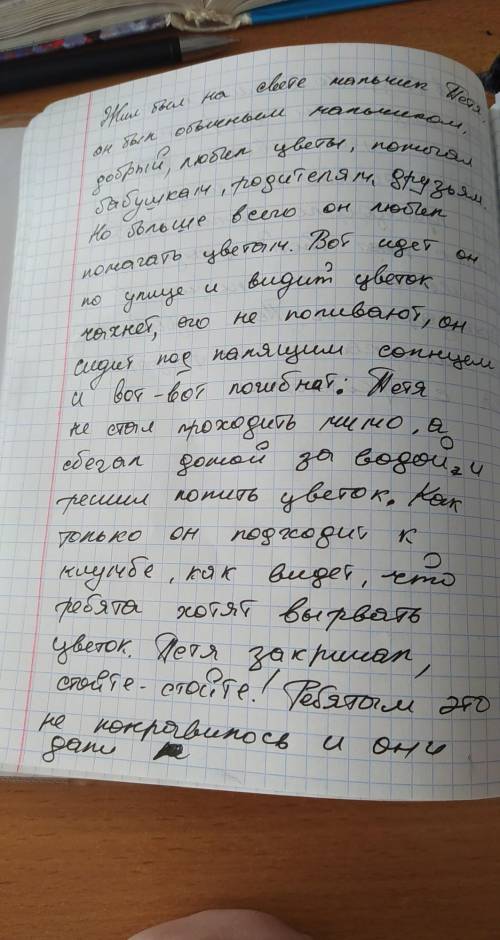 Жил был на свете мальчик Петя.
он был обычным мальчиком,
добрый, любил цветы, помогал
бабушкам, родителям, друзьям.
Но больше всего он любил
помагать цветам. Вот идет он
по улице и видит цветок
чыхнет, его не поливают, он
сидит под палящим солнцем
и вот-вот погибнат. Петя
не стал проходить мимо, а
сбегал домой за водой, и
решил полить цветок. Как
только он подходит к
клумбе, как видет, что
ребята хотят вырвать
цветок. Петя закричал,
стойте-стойте! Ребятым это
не понравилось и они
дали